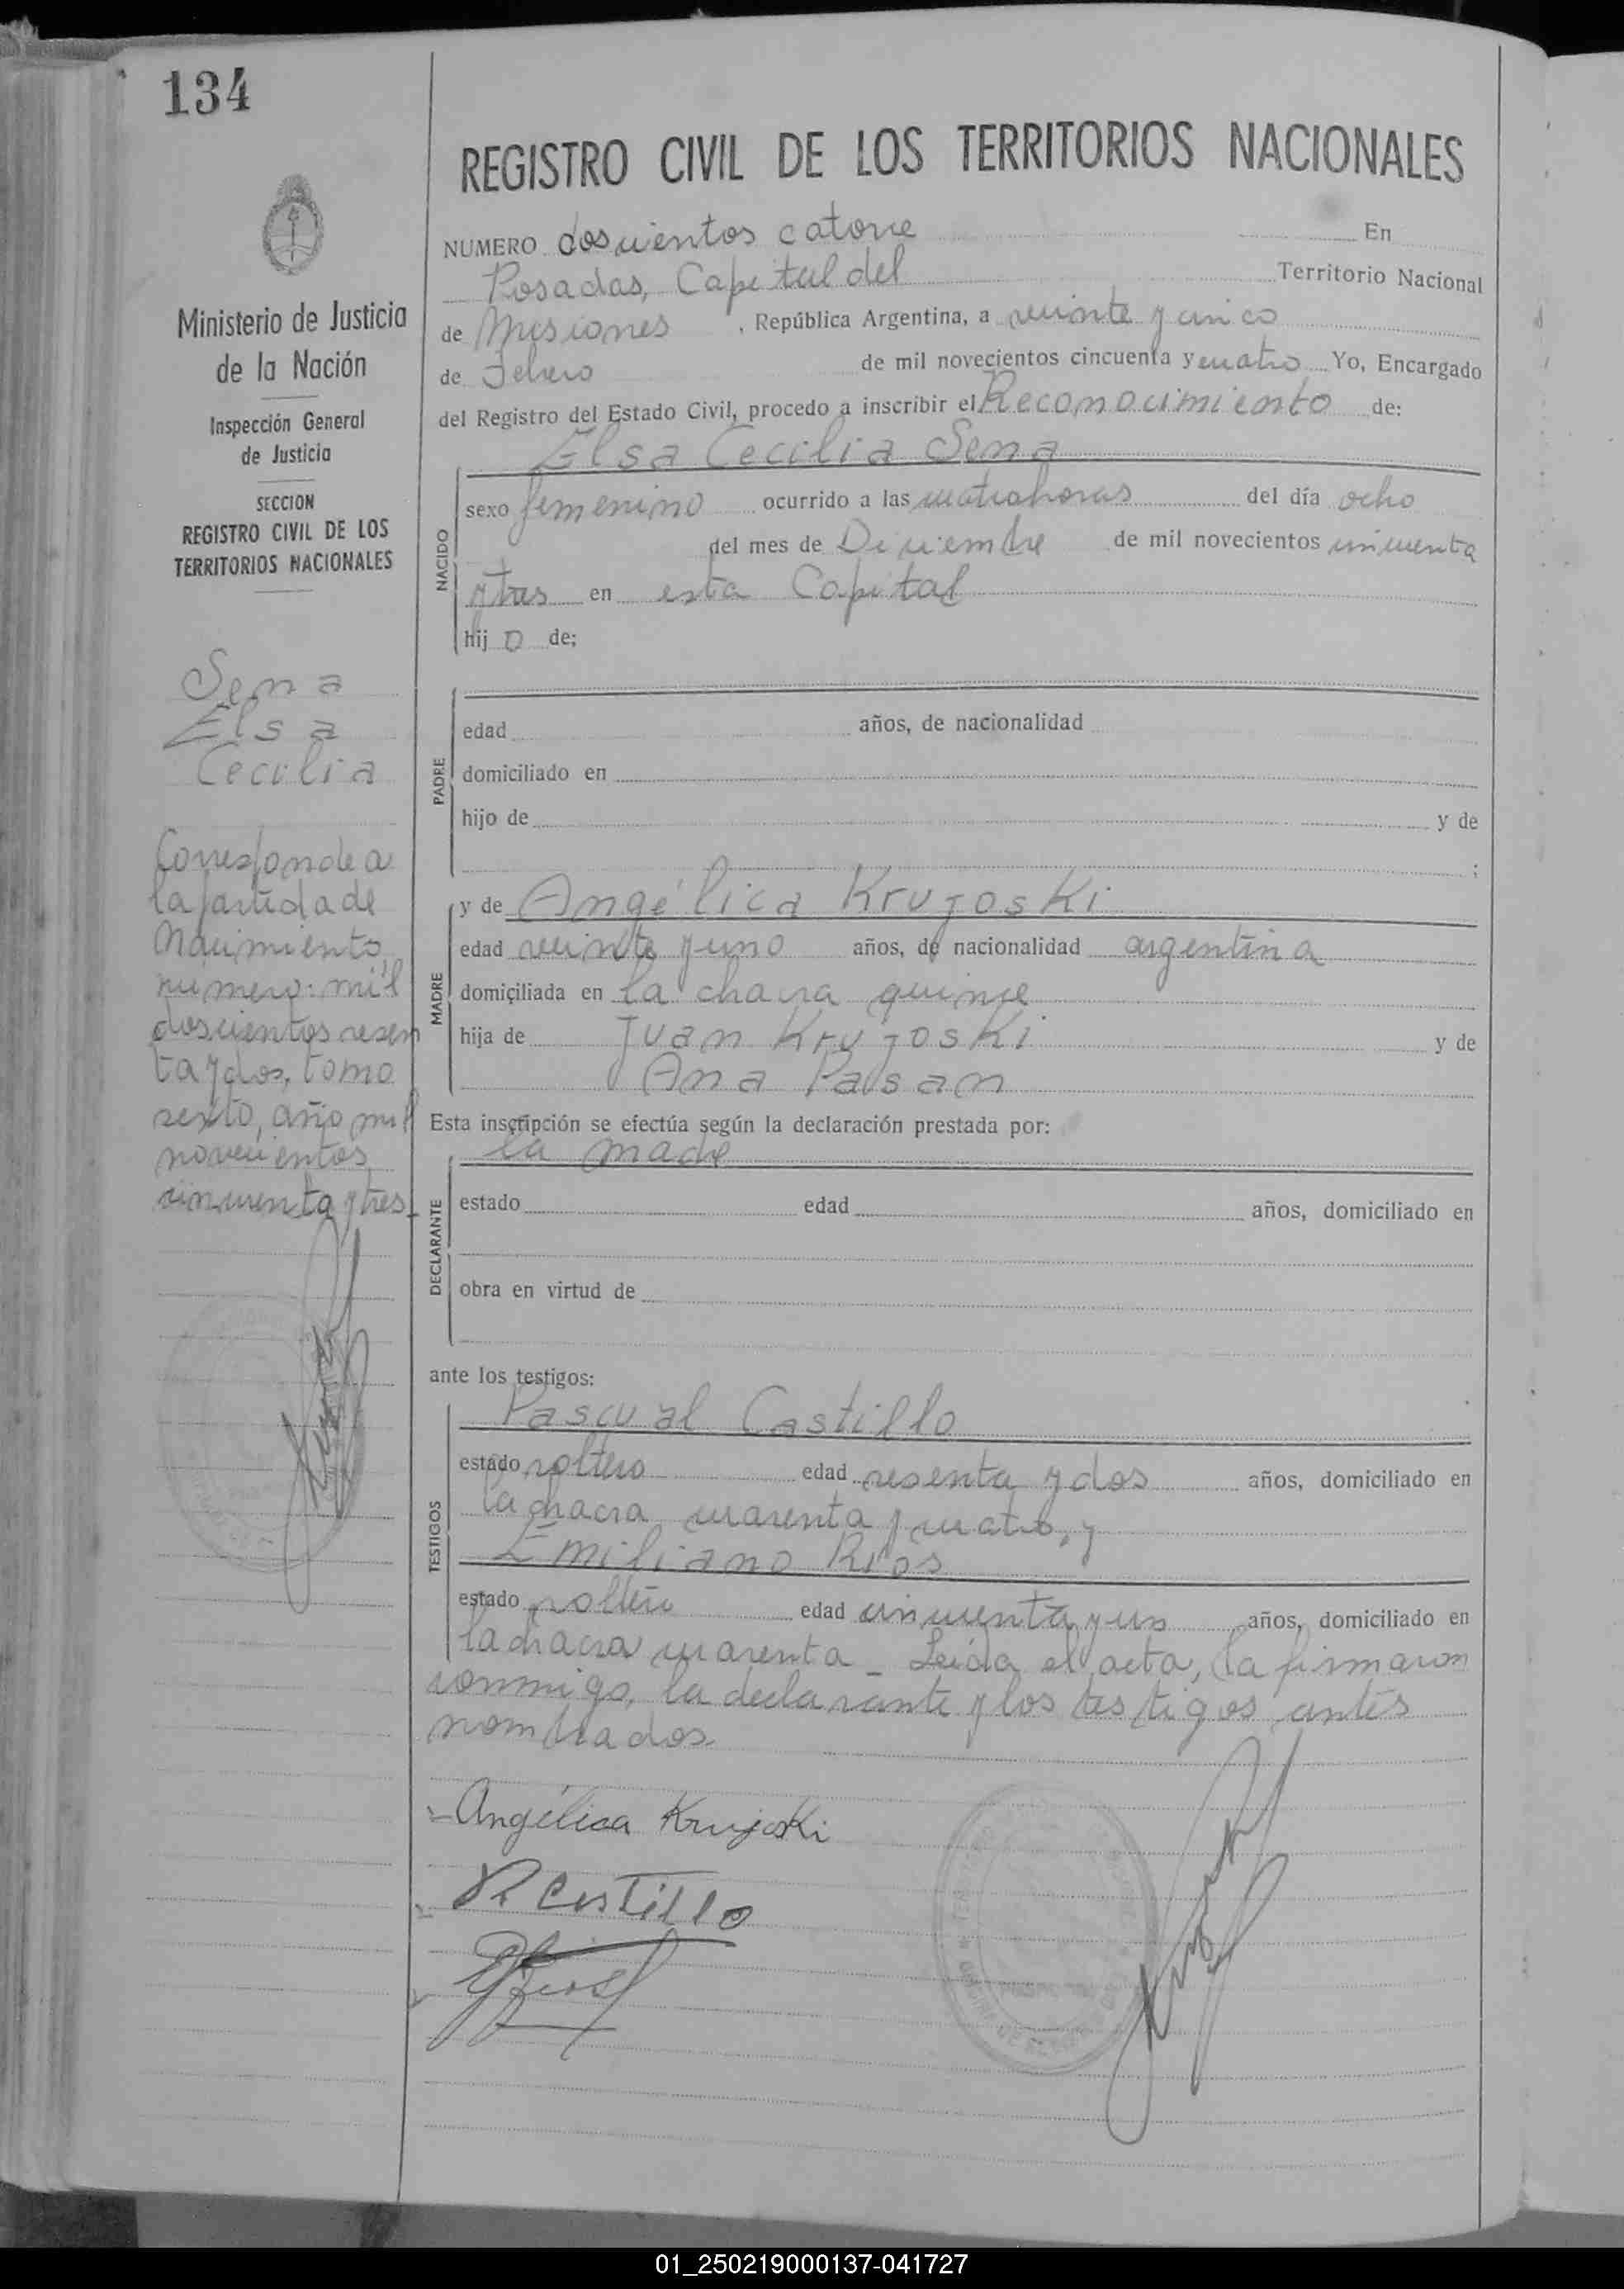 134
REGISTRO CIVIL DE LOS TERRITORIOS NACIONALES
Ministerio de Justicia
de la Nación
Inspección General
de Justicia
SECCION
REGISTRO CIVIL DE LOS
TERRITORIOS NACIONALES
Sena
Elsa
Cecilia
Corresponde a
la partida de
Nacimiento,
numero: mil
doscientos sesen
ta y dos, tomo
sexto, año mil
novecientos
cincuenta y tres
NUMERO doscientos catorce En
Posadas, Capital del Territorio Nacional
de Misiones, República Argentina, a veinte y cinco
de Febrero de mil novecientos cincuenta y cuatro Yo, Encargado
del Registro del Estado Civil, procedo a inscribir el Reconocimiento de:
Elsa Cecilia Sena
NACIDO
sexo femenino ocurrido a las cuatro horas del día ocho
del mes de Diciembre de mil novecientos cincuenta
y tres en esta Capital
hij o de;
PADRE
edad años, de nacionalidad
domiciliado en
hijo de y de
;
MADRE
y de Angélica Krujoski
edad veinte y uno años, de nacionalidad argentina
domiciliada en la chacra quince
hija de Juan Krujoski y de
Ana Pasan
Esta inscripción se efectúa según la declaración prestada por:
la madre
DECLARANTE
estado edad años, domiciliado en
obra en virtud de
ante los testigos:
TESTIGOS
Pascual Castillo
estado soltero edad sesenta y dos años, domiciliado en
la chacra cuarenta y cuatro, y
Emiliano Rios
estado soltero edad cincuenta y un años, domiciliado en
la chacra cuarenta - Leida el acta, la firmaron
conmigo, la declarante y los testigos antes
nombrados
Angélica Krujoski
P Castillo
01_250219000137-041727